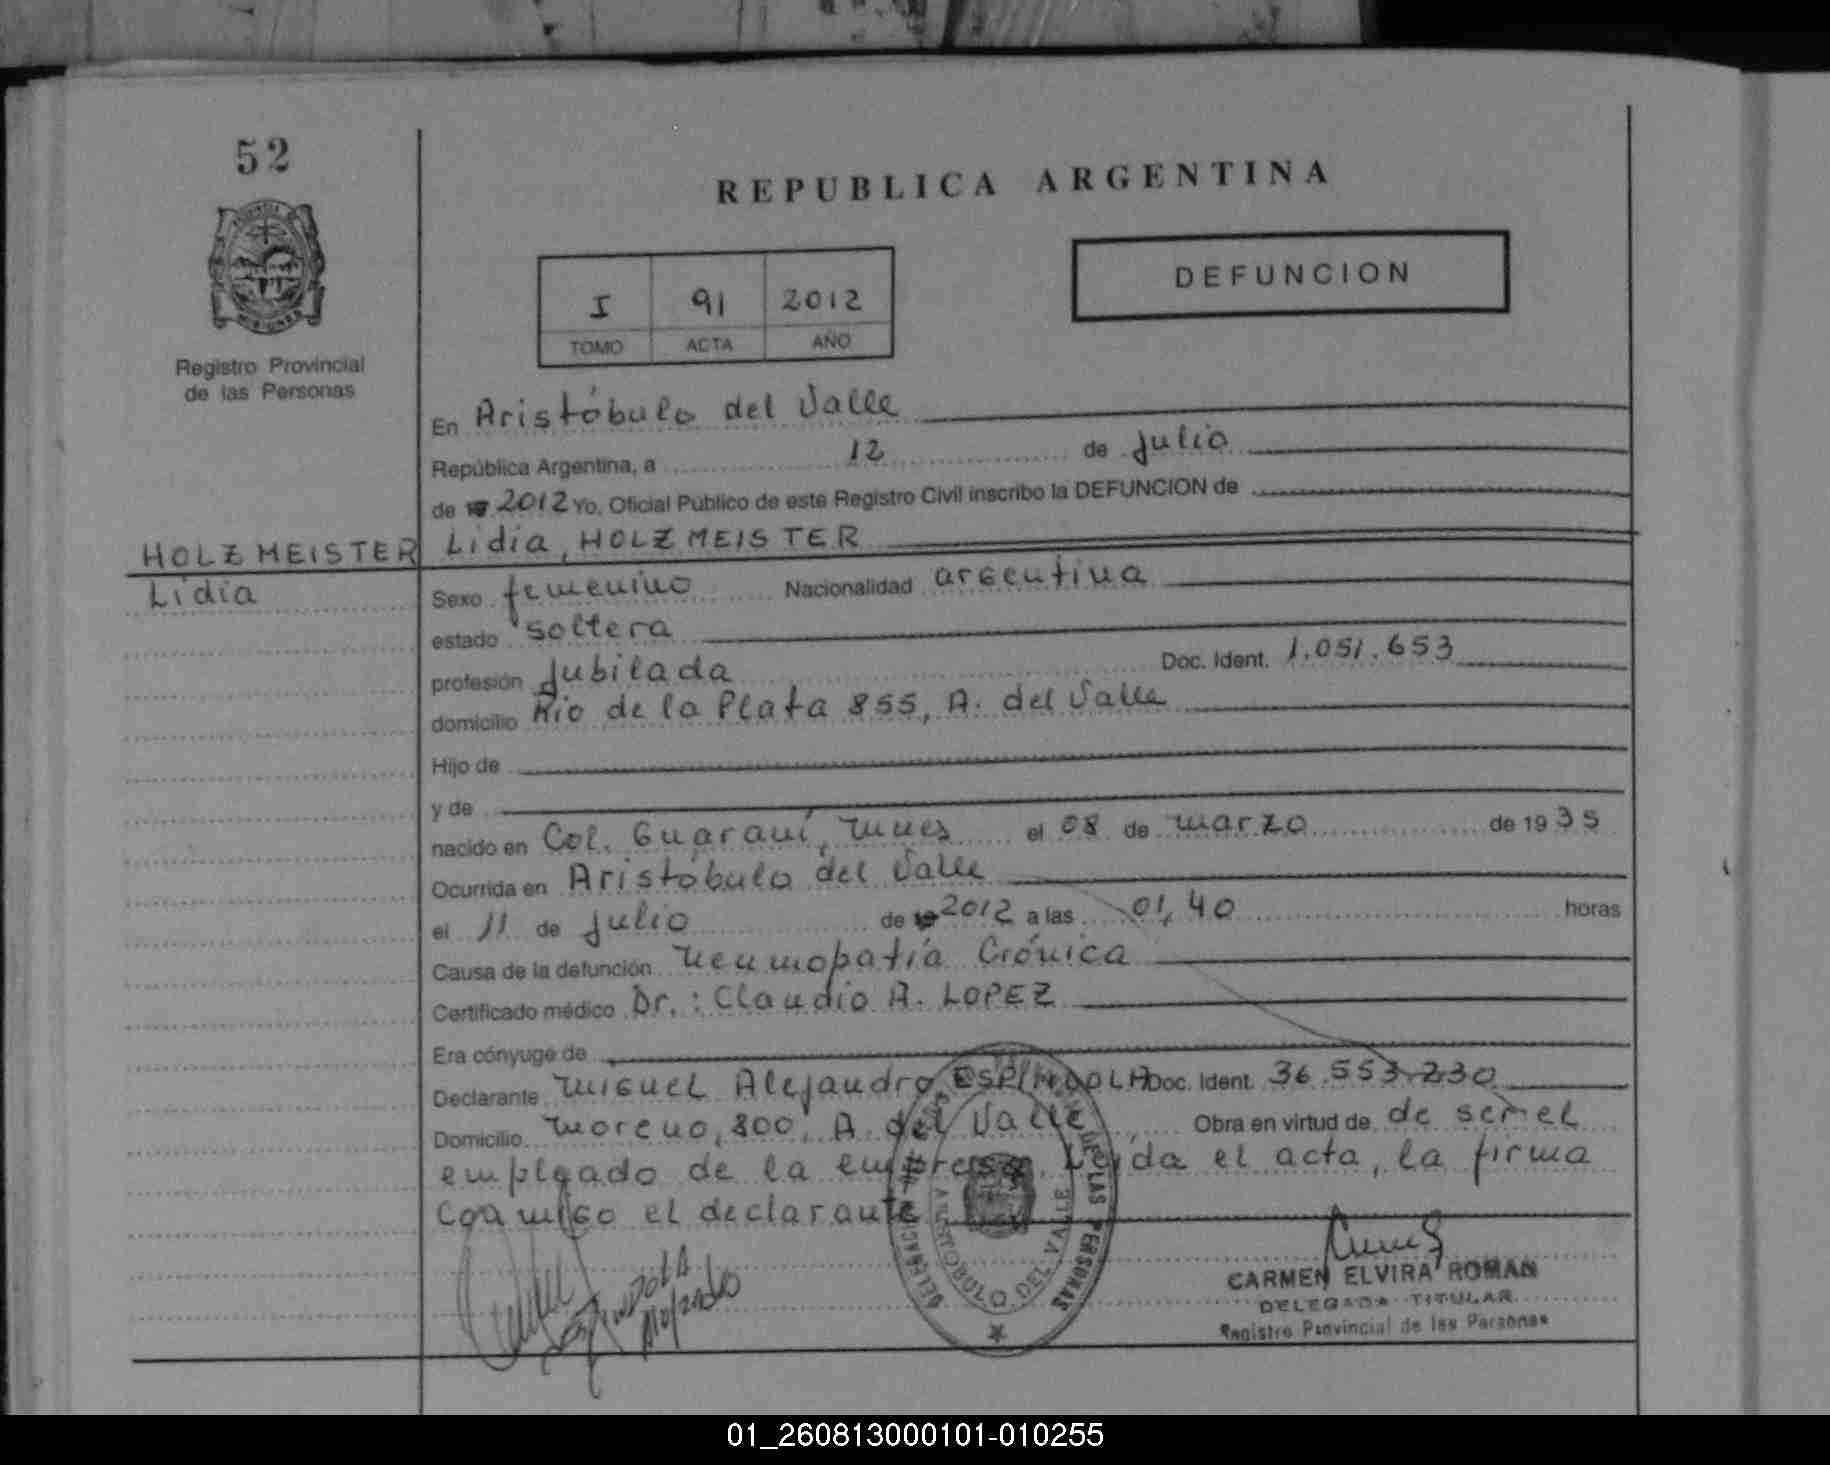 52
REPUBLICA ARGENTINA
DEFUNCION
I 91 2012
TOMO ACTA AÑO
Registro Provincial
de las Personas
En Aristóbulo del Valle
República Argentina, a 12 de julio
de 2012 Yo, Oficial Público de este Registro Civil inscribo la DEFUNCION de
HOLZMEISTER Lidia, HOLZMEISTER
Lidia
Sexo femenino Nacionalidad argentina
estado soltera
profesión Jubilada Doc. Ident. 1.051.653
domicilio Rio de la Plata 855, A. del Valle
Hijo de
y de
nacido en Col. Guaraní, Mnes el 08 de marzo de 1935
Ocurrida en Aristóbulo del Valle
el 11 de julio de 2012 a las 01,40 horas
Causa de la defunción Neumopatía Crónica
Certificado médico Dr.: Claudio A. LOPEZ
Era cónyuge de
Declarante Miguel Alejandro ESPINDOLA Doc. Ident. 36.553.230
Domicilio Moreno, 800, A. del Valle Obra en virtud de de ser el
empleado de la empresa. Leída el acta, la firma
conmigo el declarante
DELEGACION DE LAS PERSONAS
ARISTOBULO DEL VALLE
CARMEN ELVIRA ROMAN
DELEGADA TITULAR
Registro Provincial de las Personas
01_260813000101-010255